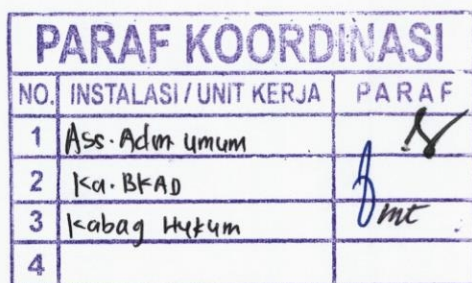 PARAF KOORDINASI
NO. INSTALASI / UNIT KERJA PARAF
1 Ass. Adm umum
2 Ka. BKAD
3 Kabag Hukum
4